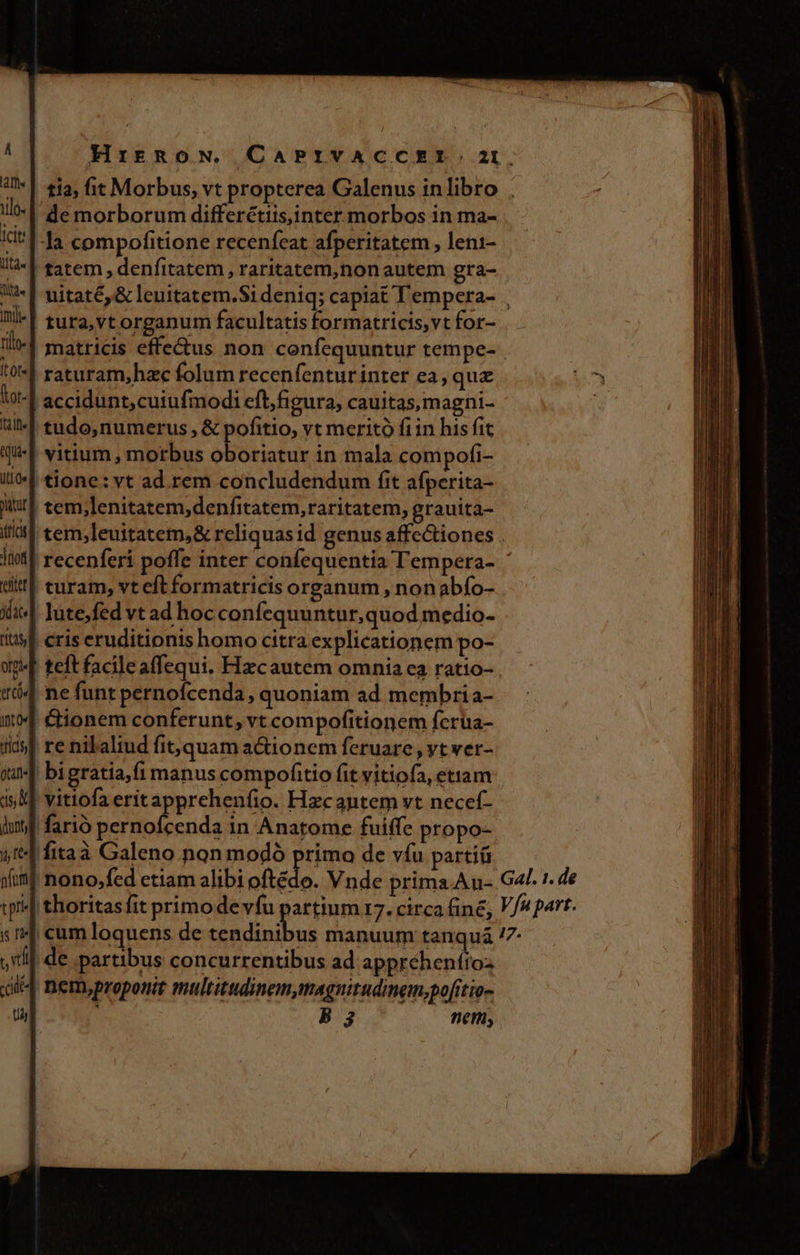 HIERON. CAPIVACCEI. 21.
tia, fit Morbus, vt propterea Galenus in libro
de morborum differẽtiis, inter morbos in ma-
la compoſitione recenſeat aſperitatem, leni-
tatem, denſitatem, raritatem, non autem gra-
uitatẽ, & leuitatem. Si deniq; capiat Tempera-
tura, vt organum facultatis formatricis, vt for-
matricis effectus non conſequuntur tempe-
raturam, hæc ſolum recenſentur inter ea, quæ
accidunt, cuiuſmodi eſt, figura, cauitas, magni-
tudo, numerus, & poſitio, vt meritò ſi in his fit
vitium, morbus oboriatur in mala compoſi-
tione: vt ad rem concludendum fit aſperita-
tem, lenitatem, denſitatem, raritatem, grauita-
tem, leuitatem, & reliquas id genus affectiones
recenſeri poſſe inter conſequentia Tempera-
turam, vt eſt formatricis organum, non abſo-
lute, ſed vt ad hoc conſequuntur, quod medio-
cris eruditionis homo citra explicationem po-
teſt facile aſſequi. Hæc autem omnia ea ratio-
ne ſunt pernoſcenda, quoniam ad membri a-
ctionem conferunt, vt compoſitionem ſerua-
re nil aliud ſit, quam actionem ſeruare, vt ver-
bi gratia, ſi manus compoſitio ſit vitioſa, etiam
vitioſa erit apprehenſio. Hæc autem vt neceſ-
ſariò pernoſcenda in Anatome fuiſſe propo-
ſita à Galeno non modò primo de vſu partiũ
nono, ſed etiam alibi oſtẽdo. Vnde prima Au-
thoritas fit primo de vſu partium 17. circa finẽ,
cum loquens de tendinibus manuum tanquã
de partibus concurrentibus ad apprehenſio-
nem, proponit multitudinem, magnitudinem, poſitio-
Gal. 1. de
Vſu part.
17.
B 3 nem,